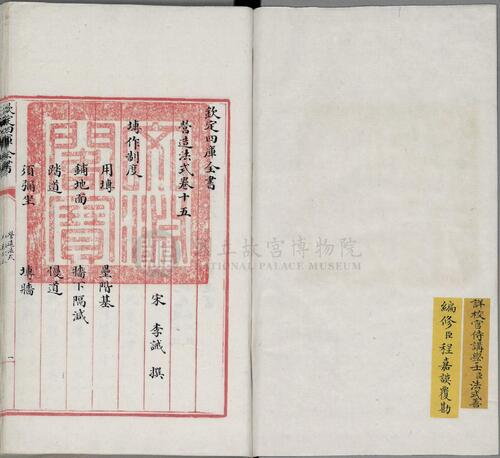 詳校官侍講學士臣法式善
編修臣程嘉謨覆勘
欽定四庫全書
營造法式卷十五
宋 李誡 撰
塼作制度
用塼 壘階基
鋪地面 牆下隔減
踏道 慢道
須彌坐 塼牆
欽定四庫全書
營造法式
一
文淵閣寶
國立故宮博物院
NATIONAL PALACE MUSEUM